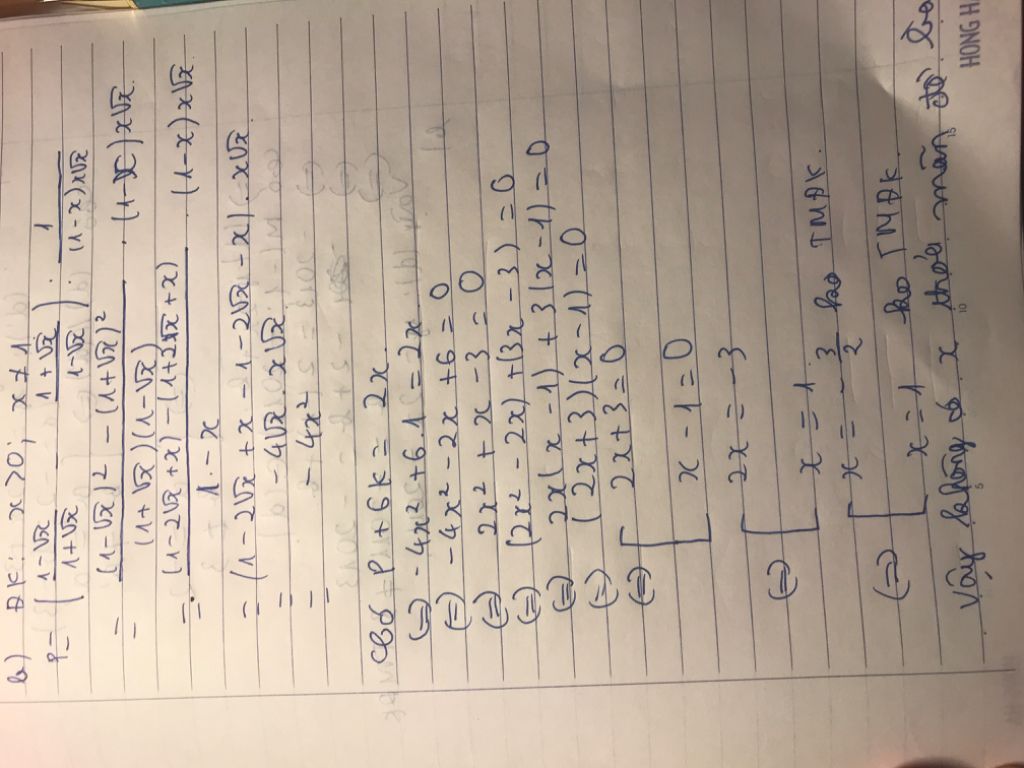 b) ĐK: x > 0; x ≠ 1
P = ( (1-√x)/(1+√x) - (1+√x)/(1-√x) ) : 1/((1-x)x√x)
= ((1-√x)² - (1+√x)²)/((1+√x)(1-√x)) . (1-x)x√x
= ((1-2√x+x) - (1+2√x+x))/(1-x) . (1-x)x√x
= (1-2√x+x-1-2√x-x).x√x
= -4√x.x√x
= -4x²
P + 6 = 2x
(=) -4x²+6 = 2x
(=) -4x²-2x+6 = 0
(=) 2x²+x-3 = 0
(=) (2x²-2x)+(3x-3) = 0
(=) 2x(x-1)+3(x-1) = 0
(=) (2x+3)(x-1) = 0
(=) [ 2x+3 = 0
x-1 = 0
(=) [ 2x = -3
x = 1
(=) [ x = -3/2 ko TMĐK
x = 1 ko TMĐK.
Vậy không có x thỏa mãn đề
HONG H